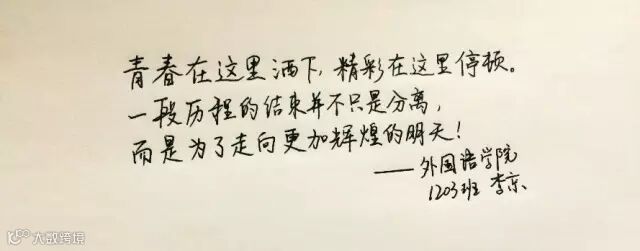 青春在这里洒下,精彩在这里停顿。
一段历程的结束并不只是分离,
而是为了走向更加辉煌的明天!
——外国语学院
1203班 李京
大数跨境